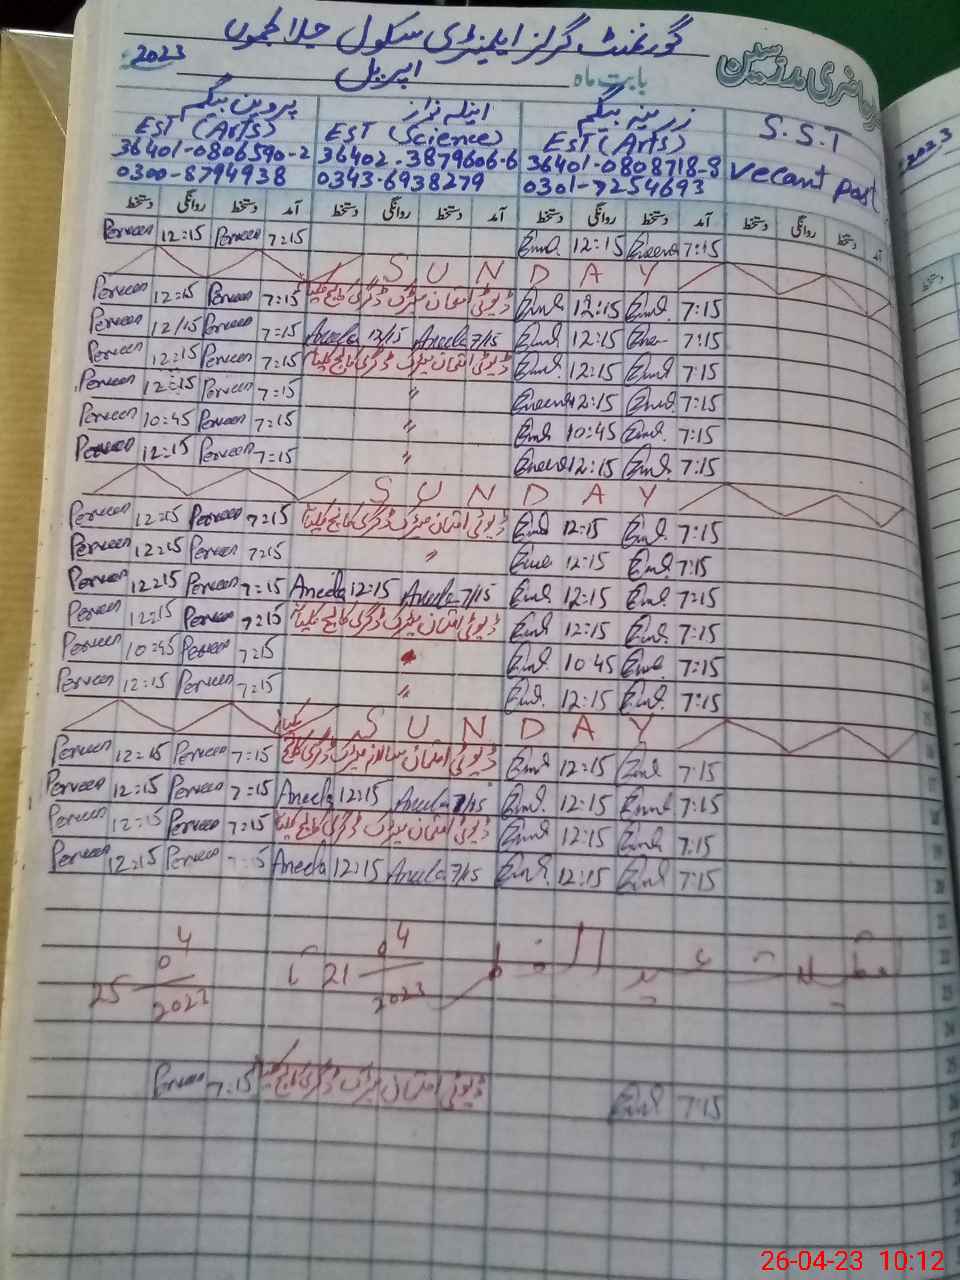 گورنمنٹ گرلز ایلیمنٹری سکول
حاضری مدرسین بابت ماہ اپریل 2023
S.S.T زرینہ بیگم انیلہ نواز پروین بیگم
Vecant post EST (Arts) EST (Science) EST (Arts)
36401-0808718-8 36402-3879606-6 36401-0806590-2
0301-7254693 0343-6938279 0300-8794938
آمد دستخط روانگی دستخط آمد دستخط روانگی دستخط آمد دستخط روانگی دستخط آمد دستخط روانگی دستخط
Perveen 12:15 Perveen 7:15 12:15 7:15
S U N D A Y
Perveen 12:15 Perveen 7:15 ڈیوٹی امتحان میٹرک ڈگری کالج 12:15 7:15
Perveen 12/15 Perveen 7:15 Aneela 12/15 Aneela 7/15 12:15 7:15
Perveen 12:15 Perveen 7:15 ڈیوٹی امتحان میٹرک ڈگری کالج 12:15 7:15
Perveen 12:15 Perveen 7:15 " 12:15 7:15
Perveen 10:45 Perveen 7:15 " 10:45 7:15
Perveen 12:15 Perveen 7:15 " 12:15 7:15
S U N D A Y
Perveen 12:15 Perveen 7:15 ڈیوٹی امتحان میٹرک ڈگری کالج 12:15 7:15
Perveen 12:15 Perveen 7:15 " 12:15 7:15
Perveen 12:15 Perveen 7:15 Aneela 12:15 Aneela 7/15 12:15 7:15
Perveen 12:15 Perveen 7:15 ڈیوٹی امتحان میٹرک ڈگری کالج 12:15 7:15
Perveen 10:45 Perveen 7:15 10:45 7:15
Perveen 12:15 Perveen 7:15 " 12:15 7:15
S U N D A Y
Perveen 12:15 Perveen 7:15 ڈیوٹی امتحان سالانہ میٹرک ڈگری کالج 12:15 7:15
Perveen 12:15 Perveen 7:15 Aneela 12:15 Aneela 7/15 12:15 7:15
Perveen 12:15 Perveen 7:15 ڈیوٹی امتحان میٹرک ڈگری کالج 12:15 7:15
Perveen 12:15 Perveen 7:15 Aneela 12:15 Aneela 7/15 12:15 7:15
تعطیلات عید الفطر 21 04 2023 تا 25 04 2023
Perveen 7:15 ڈیوٹی امتحان میٹرک ڈگری کالج 7:15
2023
26-04-23 10:12